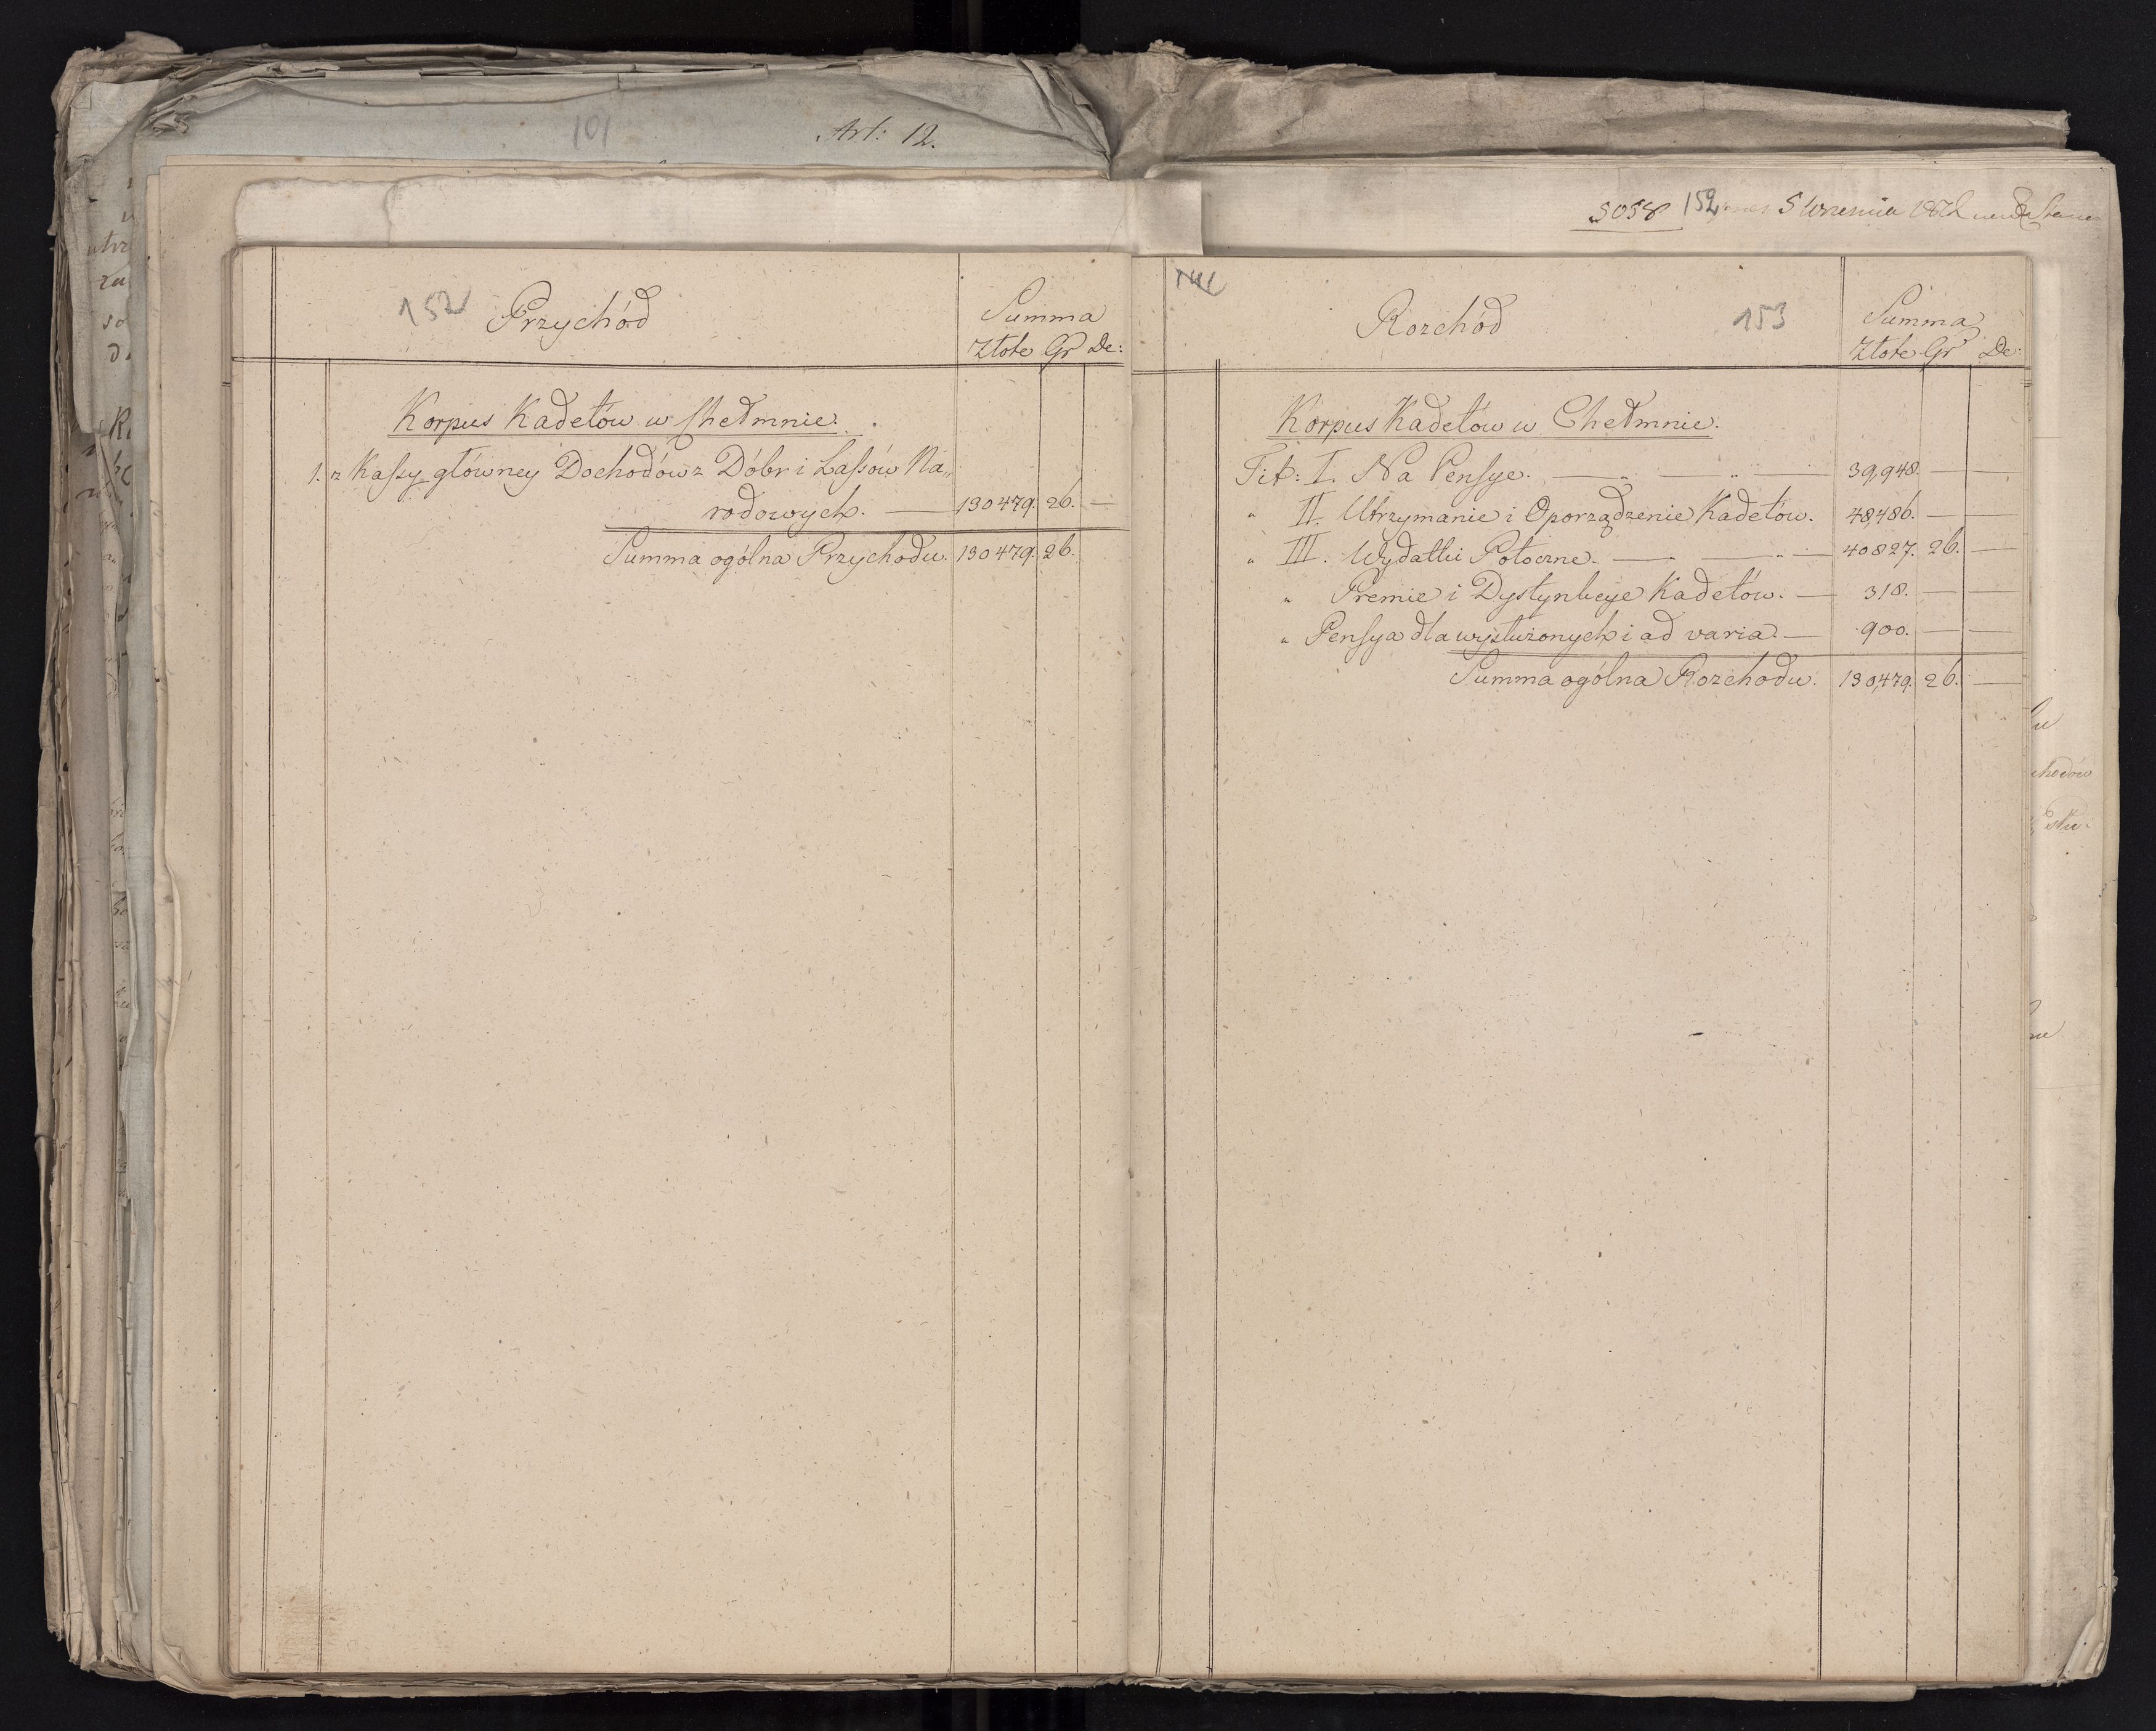 101 Art: 12.
152 Przychód
Summa
Złote Gr De:
Korpus Kadetów w Chełmnie.
1. z Kassy główney Dochodów z Dóbr i Lassów Na„
rodowych. — 130479. 26. —
Summa ogólna Przychodu. 130479. 26.
5058 152 5 Września
Rozchód 153
Summa
Złote Gr De:
Korpus Kadetów w Chełmnie.
Tit: I. Na Pensye. — „ — „ — 39,948. — —
„ II. Utrzymanie i Oporządzenie Kadetów. 48,486. — —
„ III. Wydatki Potoczne. — „ — „ — 40827. 26. —
„ Premie i Dystynkcye Kadetów. — 318. — —
„ Pensya dla wysłużonych i ad varia. — 900. — —
Summa ogólna Rozchodu. 130,479. 26. —
chodów